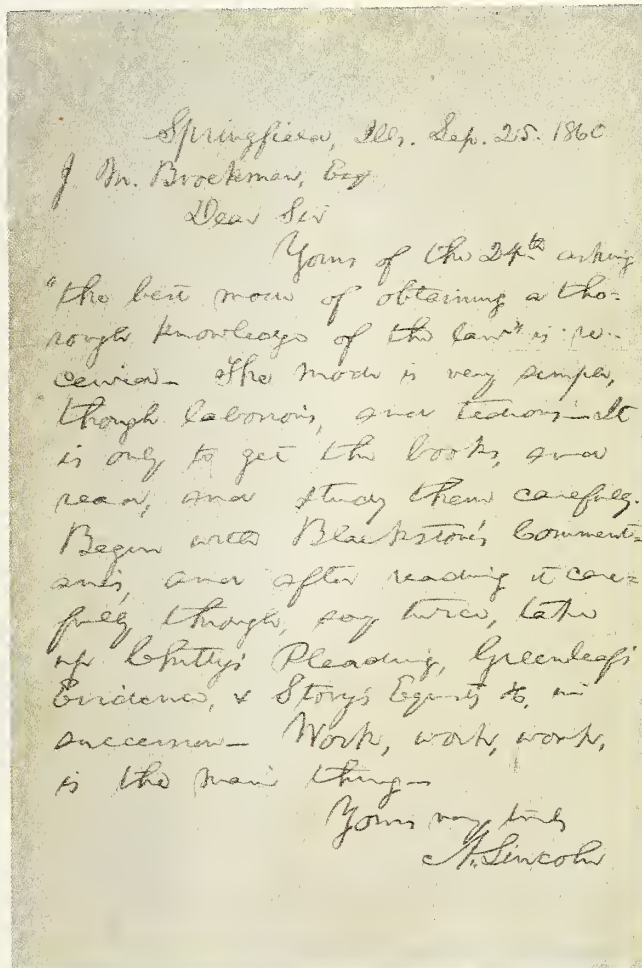 Springfield, Ills. Sep. 25. 1860
J. M. Brockman, Esq
Dear Sir
Yours of the 24th asking
"the best mode of obtaining a tho-
rough knowledge of the law" is re-
ceived— The mode is very simple,
though laborious, and tedious— It
is only to get the books, and
read, and study them carefully.
Begin with Blackstone's Comment-
aries, and after reading it care-
fully through, say twice, take
up Chitty's Pleading, Greenleaf's
Evidence, & Story's Equity &c, in
succession— Work, work, work,
is the main thing—
Yours very truly
A. Lincoln